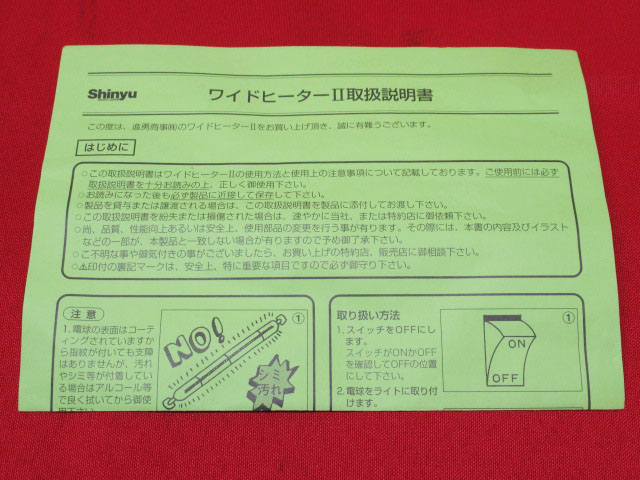 Shinyu
ワイドヒーターII取扱説明書
この度は、進勇商事㈱のワイドヒーターIIをお買い上げ頂き、誠に有難うございます。
はじめに
○この取扱説明書はワイドヒーターIIの使用方法と使用上の注意事項について記載しております。ご使用前には必ず
取扱説明書を十分お読みの上、正しく御使用下さい。
○お読みになった後も必ず製品に近接して保存して下さい。
○製品を貸与または譲渡される場合は、この取扱説明書を製品に添付してお渡し下さい。
○この取扱説明書を紛失または損傷された場合は、速やかに当社、または特約店に御依頼下さい。
○尚、品質、性能向上あるいは安全上、使用部品の変更を行う事が有ります。その際には、本書の内容及びイラスト
などの一部が、本製品と一致しない場合が有りますので予め御了承下さい。
○ご不明な事や御気付きの事がございましたら、お買い上げの特約店、販売店に御相談下さい。
○⚠印付の裏記マークは、安全上、特に重要な項目ですので必ず御守り下さい。
注意
①
1.電球の表面はコーテ
ィングされていますか
ら指紋が付いても支障
はありませんが、汚れ
やシミ等が付着している
場合はアルコール等
で良く拭いてから御使
用下さい。
NO!
シミ
汚れ
取り扱い方法
①
1.スイッチをOFFにし
ます。
スイッチがONかOFF
を確認してOFFの位置
にして下さい。
2.電球をライトに取り付
けます。
ON
OFF